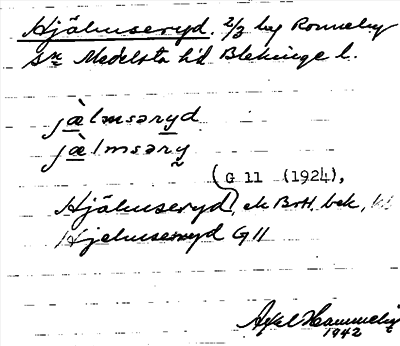 Hjälmseryd. 2/3 hsg Ronneby
sn Medelsta hd. Blekinge l.
jæ̀lmsəryd
jæ̀lmsəry
G 11 (1924),
Hjälmseryd, ek Bott. bek,
Hjelmseryd G 11
Axel Hammelin
1942